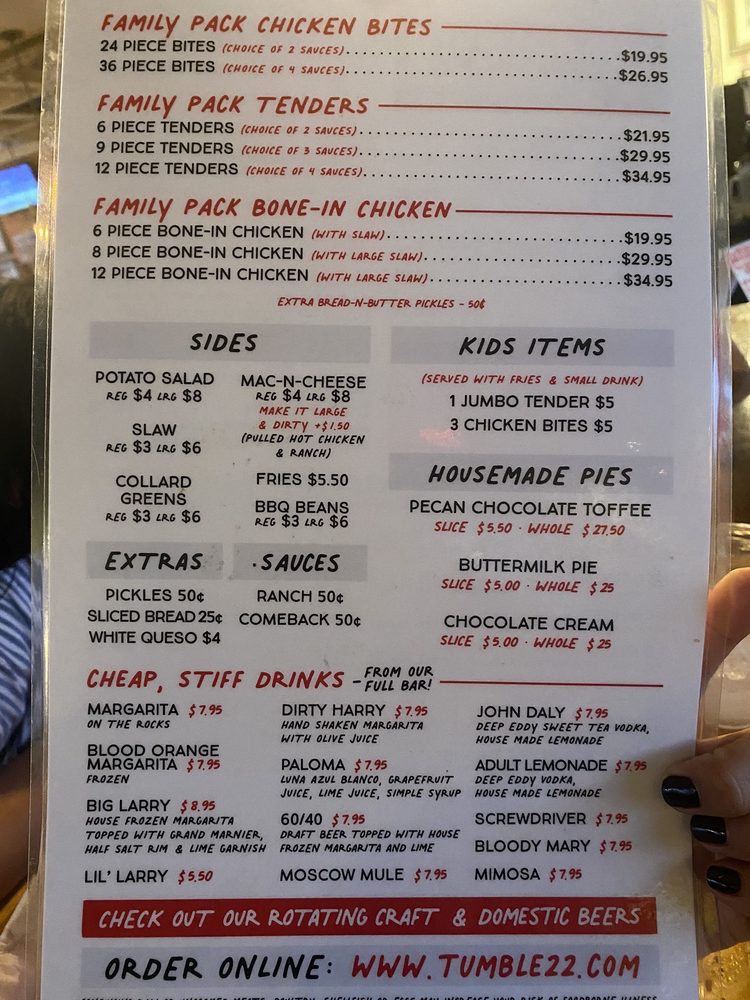 FAMILY PACK CHICKEN BITES
24 PIECE BITES (CHOICE OF 2 SAUCES)....................$19.95
36 PIECE BITES (CHOICE OF 4 SAUCES)....................$26.95
FAMILY PACK TENDERS
6 PIECE TENDERS (CHOICE OF 2 SAUCES)....................$21.95
9 PIECE TENDERS (CHOICE OF 3 SAUCES)....................$29.95
12 PIECE TENDERS (CHOICE OF 4 SAUCES)....................$34.95
FAMILY PACK BONE-IN CHICKEN
6 PIECE BONE-IN CHICKEN (WITH SLAW)....................$19.95
8 PIECE BONE-IN CHICKEN (WITH LARGE SLAW)....................$29.95
12 PIECE BONE-IN CHICKEN (WITH LARGE SLAW)....................$34.95
EXTRA BREAD-N-BUTTER PICKLES - 50¢
SIDES
POTATO SALAD
REG $4 LRG $8
SLAW
REG $3 LRG $6
COLLARD
GREENS
REG $3 LRG $6
MAC-N-CHEESE
REG $4 LRG $8
MAKE IT LARGE
& DIRTY +$1.50
(PULLED HOT CHICKEN
& RANCH)
FRIES $5.50
BBQ BEANS
REG $3 LRG $6
EXTRAS
PICKLES 50¢
SLICED BREAD 25¢
WHITE QUESO $4
SAUCES
RANCH 50¢
COMEBACK 50¢
KIDS ITEMS
(SERVED WITH FRIES & SMALL DRINK)
1 JUMBO TENDER $5
3 CHICKEN BITES $5
HOUSEMADE PIES
PECAN CHOCOLATE TOFFEE
SLICE $5.50 · WHOLE $27.50
BUTTERMILK PIE
SLICE $5.00 · WHOLE $25
CHOCOLATE CREAM
SLICE $5.00 · WHOLE $25
CHEAP, STIFF DRINKS - FROM OUR
FULL BAR!
MARGARITA $7.95
ON THE ROCKS
BLOOD ORANGE
MARGARITA $7.95
FROZEN
BIG LARRY $8.95
HOUSE FROZEN MARGARITA
TOPPED WITH GRAND MARNIER,
HALF SALT RIM & LIME GARNISH
LIL' LARRY $5.50
DIRTY HARRY $7.95
HAND SHAKEN MARGARITA
WITH OLIVE JUICE
PALOMA $7.95
LUNA AZUL BLANCO, GRAPEFRUIT
JUICE, LIME JUICE, SIMPLE SYRUP
60/40 $7.95
DRAFT BEER TOPPED WITH HOUSE
FROZEN MARGARITA AND LIME
MOSCOW MULE $7.95
JOHN DALY $7.95
DEEP EDDY SWEET TEA VODKA,
HOUSE MADE LEMONADE
ADULT LEMONADE $7.95
DEEP EDDY VODKA,
HOUSE MADE LEMONADE
SCREWDRIVER $7.95
BLOODY MARY $7.95
MIMOSA $7.95
CHECK OUT OUR ROTATING CRAFT & DOMESTIC BEERS
ORDER ONLINE: WWW.TUMBLE22.COM